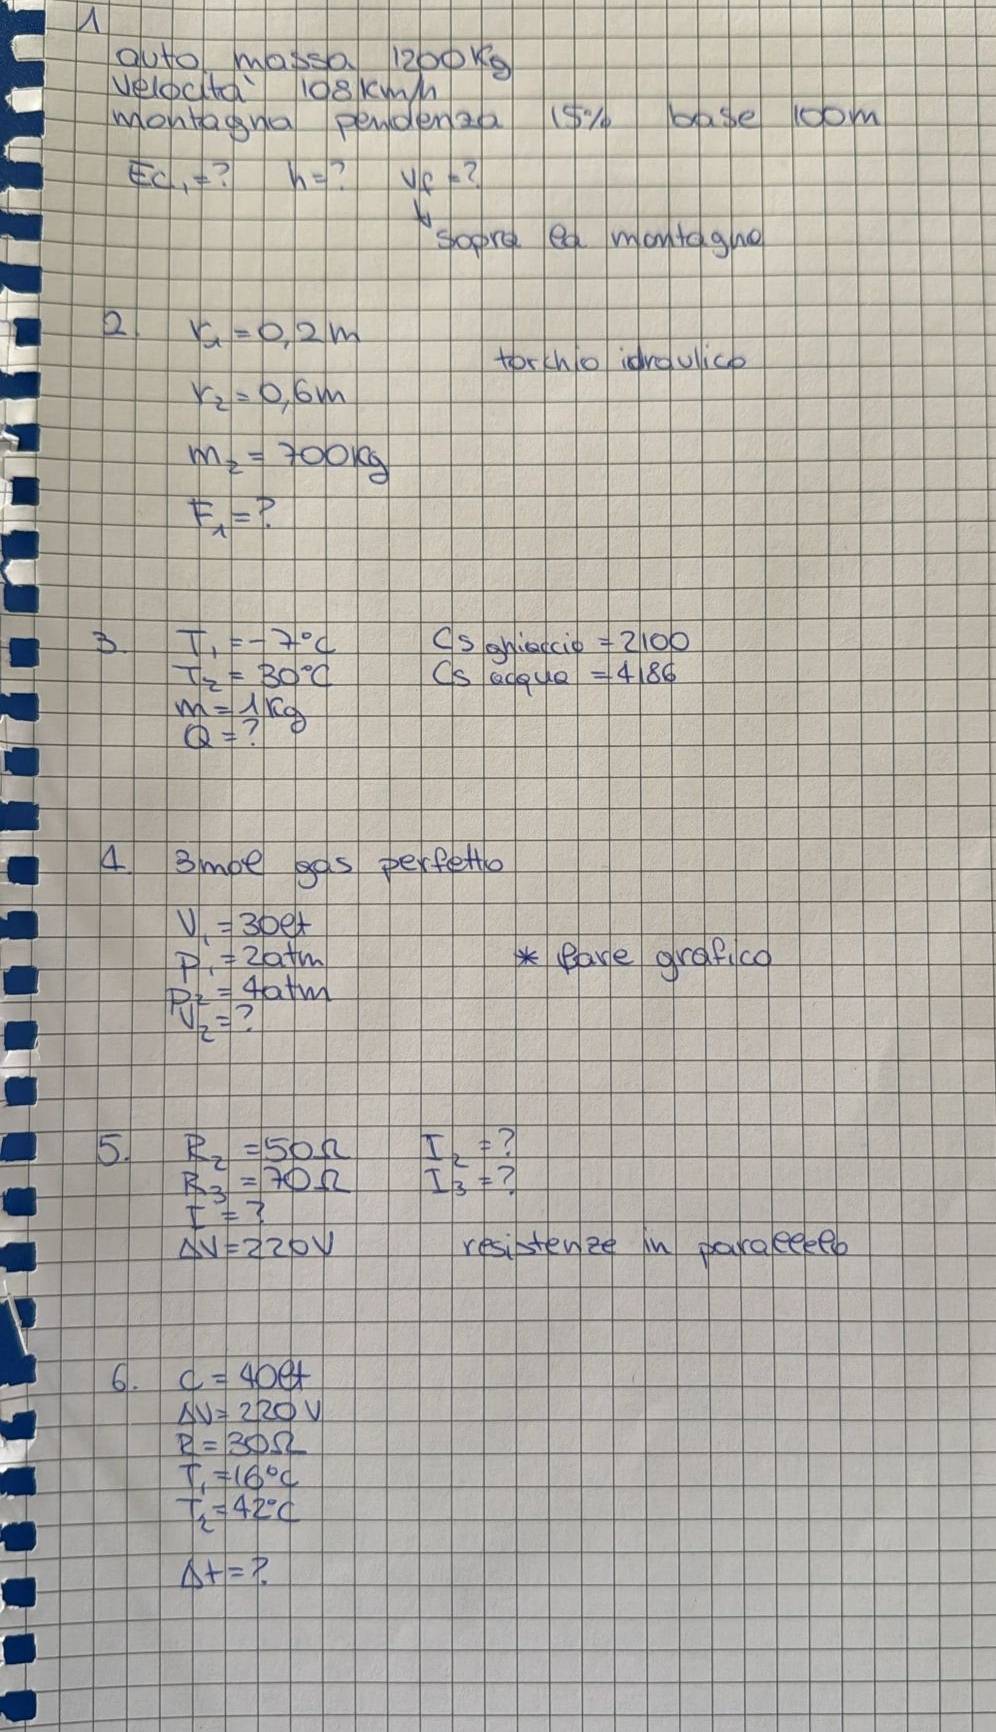 1
auto massa 1200Kg
velocità 108Km/h
montagna pendenza 15% base 100m
Ec₁=? h=? vf=?
↓
sopra la montagna
2. r₁=0,2m
torchio idraulico
r₂=0,6m
m₂=700kg
F₁=?
3. T₁=-7°C Cs ghiaccio=2100
T₂=30°C Cs acqua=4186
m=1Kg
Q=?
4. 3mol gas perfetto
V₁=30lt
P₁=2atm * fare grafico
P₂=4atm
V₂=?
5. R₂=50Ω I₂=?
R₃=70Ω I₃=?
I=?
ΔV=220V resistenze in parallelo
6. C=40lt
ΔV=220V
R=30Ω
T₁=16°C
T₂=42°C
Δt=?